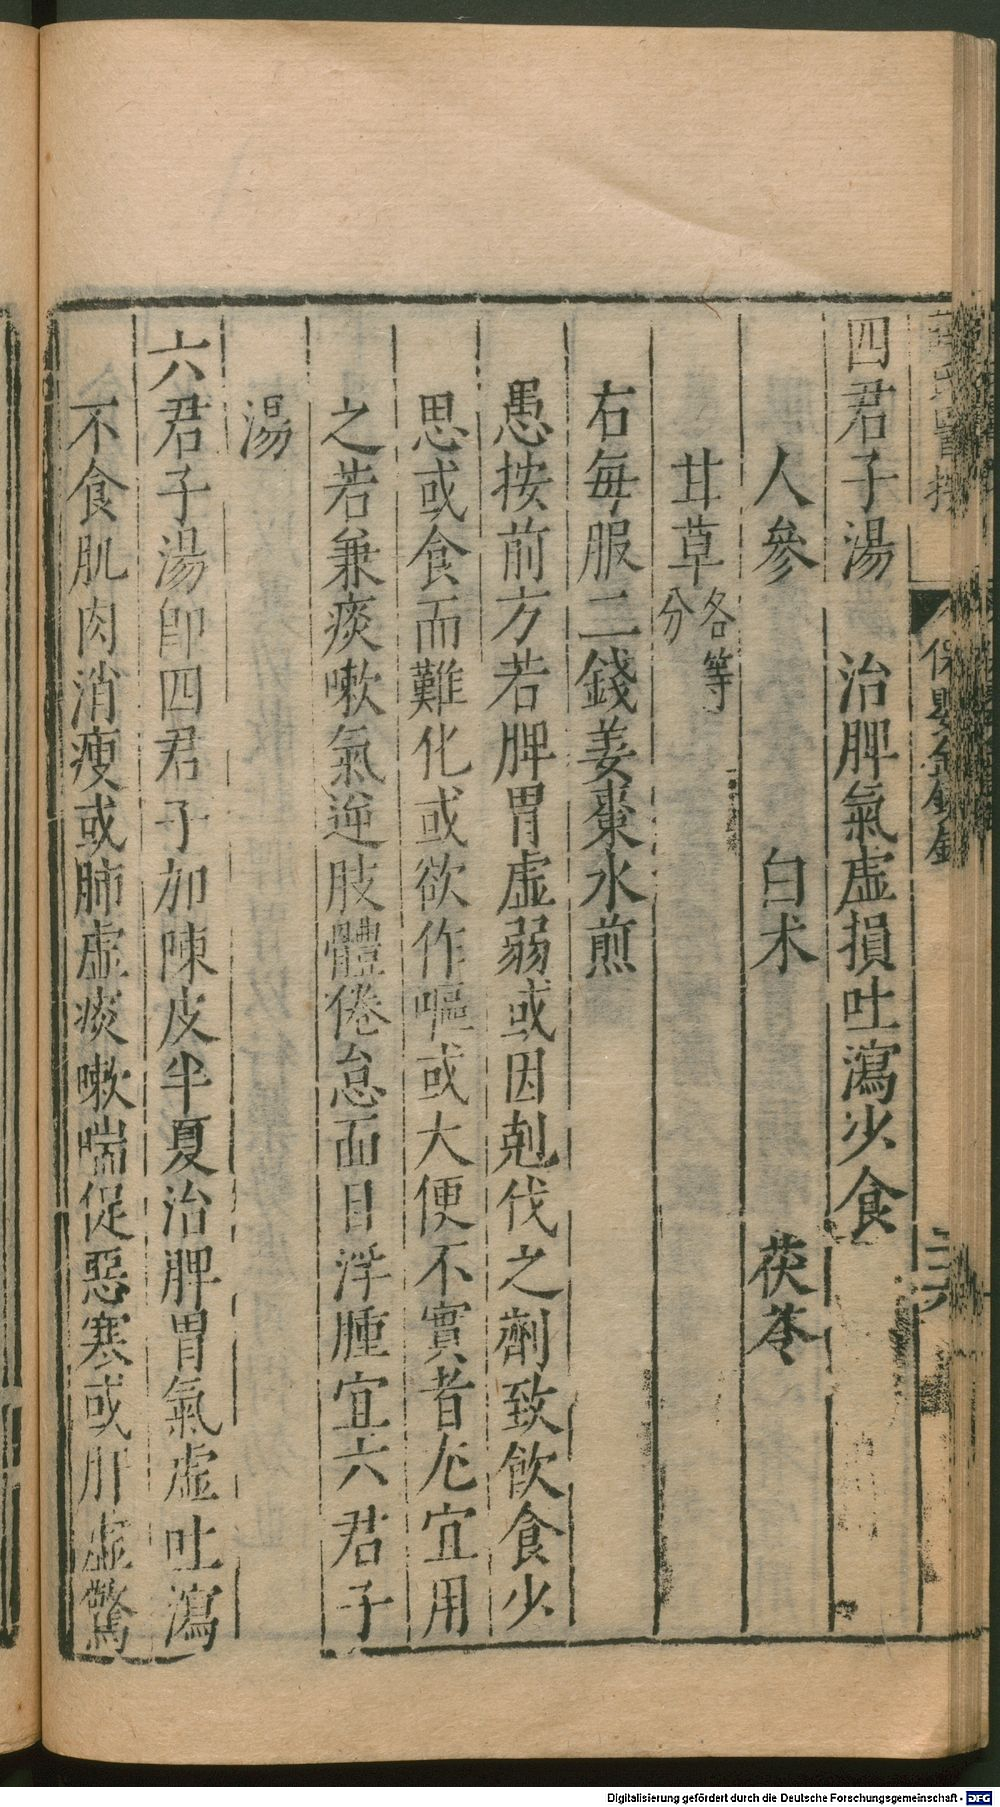 保嬰金鏡錄
四君子湯　治脾氣虛損吐瀉少食
人參　白术　茯苓
甘草各等分
右每服二錢姜棗水煎
愚按前方若脾胃虛弱或因剋伐之劑致飲食少
思或食而難化或欲作嘔或大便不實者尤宜用
之若兼痰嗽氣逆肢體倦怠面目浮腫宜六君子
湯
六君子湯卽四君子加陳皮半夏治脾胃氣虛吐瀉
不食肌肉消瘦或肺虛痰嗽喘促惡寒或肝虛驚
Digitalisierung gefördert durch die Deutsche Forschungsgemeinschaft - DFG